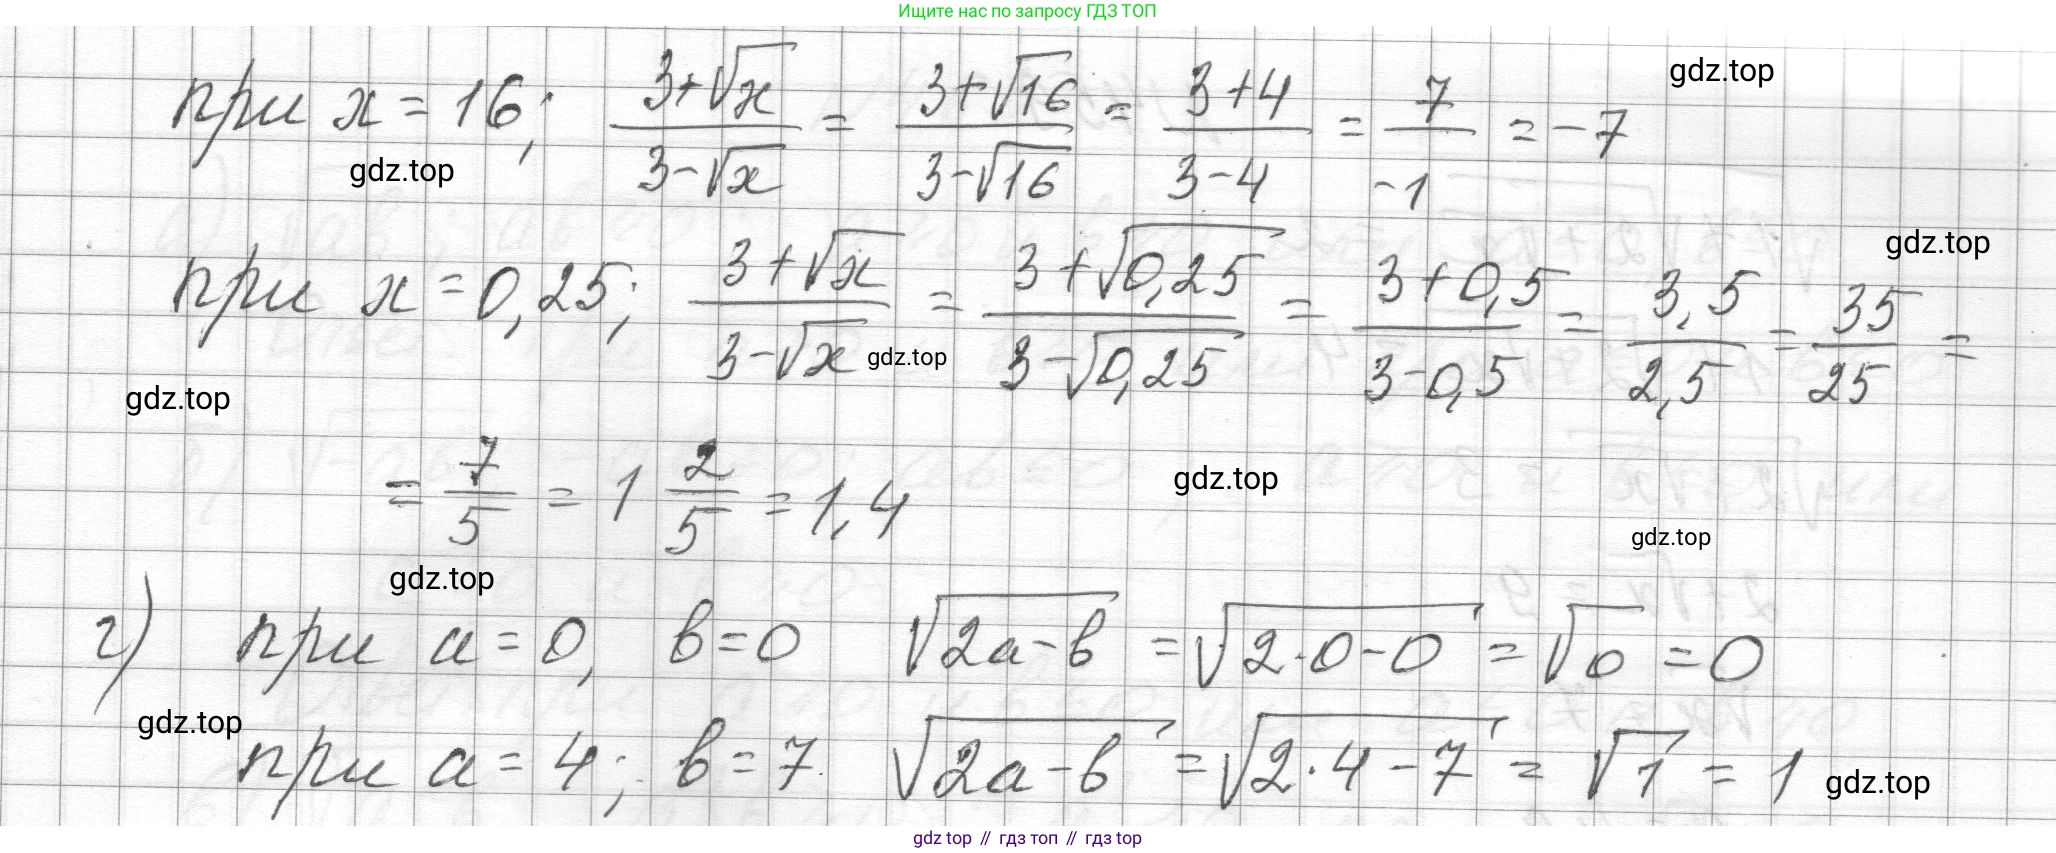 Ищите нас по запросу ГДЗ ТОП
при x = 16; (3+√x)/(3-√x) = (3+√16)/(3-√16) = (3+4)/(3-4) = 7/-1 = -7
gdz.top
gdz.top
при x = 0,25; (3+√x)/(3-√x) = (3+√0,25)/(3-√0,25) = (3+0,5)/(3-0,5) = 3,5/2,5 = 35/25 =
gdz.top
gdz.top
gdz.top
= 7/5 = 1 2/5 = 1,4
gdz.top
gdz.top
gdz.top
г) при a = 0, b = 0 √(2a-b) = √(2·0-0) = √0 = 0
gdz.top
при a = 4; b = 7 √(2a-b) = √(2·4-7) = √1 = 1
gdz.top
gdz top // гдз топ // гдз top